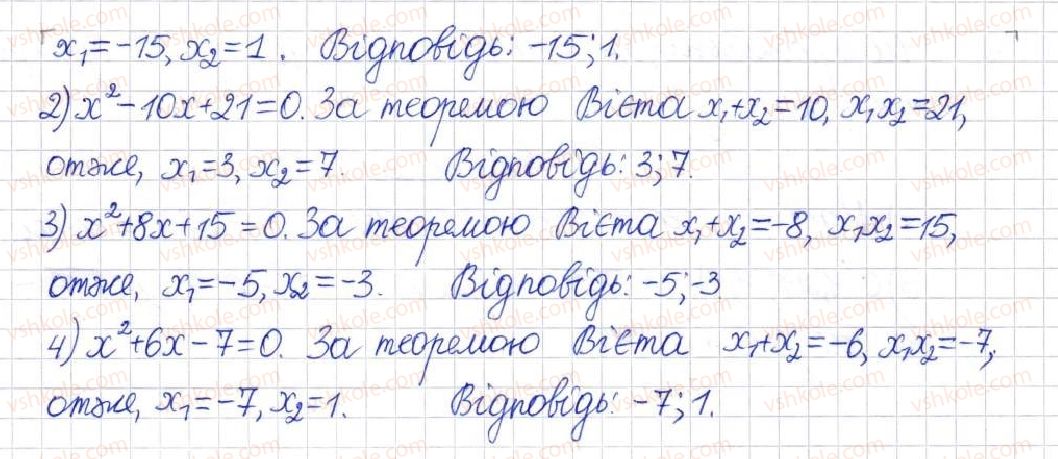 x₁=-15, x₂=1. Відповідь: -15; 1.
2) x²-10x+21=0. За теоремою Вієта x₁+x₂=10, x₁x₂=21,
отже, x₁=3, x₂=7. Відповідь: 3; 7.
3) x²+8x+15=0. За теоремою Вієта x₁+x₂=-8, x₁x₂=15,
отже, x₁=-5, x₂=-3. Відповідь: -5; -3
4) x²+6x-7=0. За теоремою Вієта x₁+x₂=-6, x₁x₂=-7,
отже, x₁=-7, x₂=1. Відповідь: -7; 1.